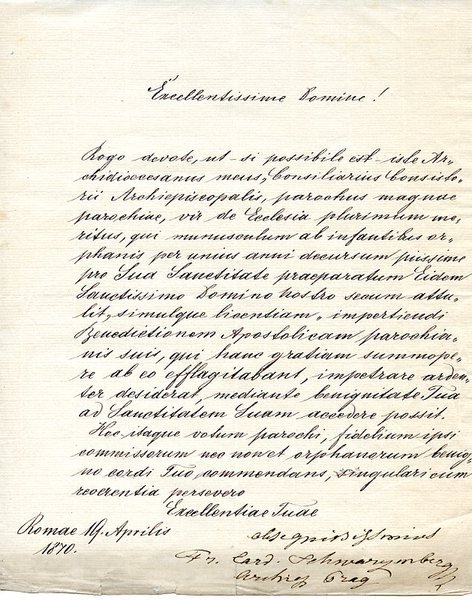 Excellentissime Domine!
Rogo devote, ut – si possibile est – iste Ar-
chidioecesanus meus, Consiliarius Consisto-
rii Archiepiscopalis, parochus magnae
parochiae, vir de Ecclesia plurimum me-
ritus, qui munusculum ab infantibus or-
phanis per unius anni decursum piissime
pro Sua Sanctitate praeparatum Eidem
Sanctissimo Domino nostro secum attu-
lit, simulque licentiam impertiendi
Benedictionem Apostolicam parochia-
nis suis, qui hanc gratiam summope-
re ab eo efflagitabant, impetrare arden-
ter desiderat, mediante benignitate Tua
ad Sanctitatem Suam accedere possit.
Hoc itaque votum parochi, fidelium ipsi
commissorum nec non et orphanorum benig-
no cordi Tuo commendans, singulari cum
reverentia persevero
Excellentiae Tuae
Romae 19. Aprilis
1870.
obsequiosissimus
Fr. Card. Schwarzenberg
Archiep Prag